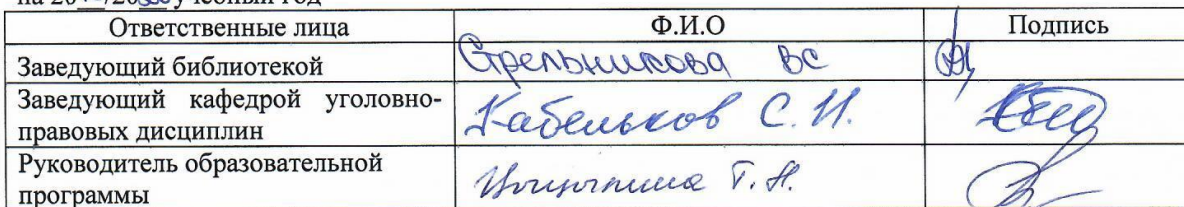 учебный год
Ответственные лица Ф.И.О Подпись
Заведующий библиотекой Стрельникова ВС
Заведующий кафедрой уголовно-
правовых дисциплин Кабельков С.Н.
Руководитель образовательной
программы Т.Н.